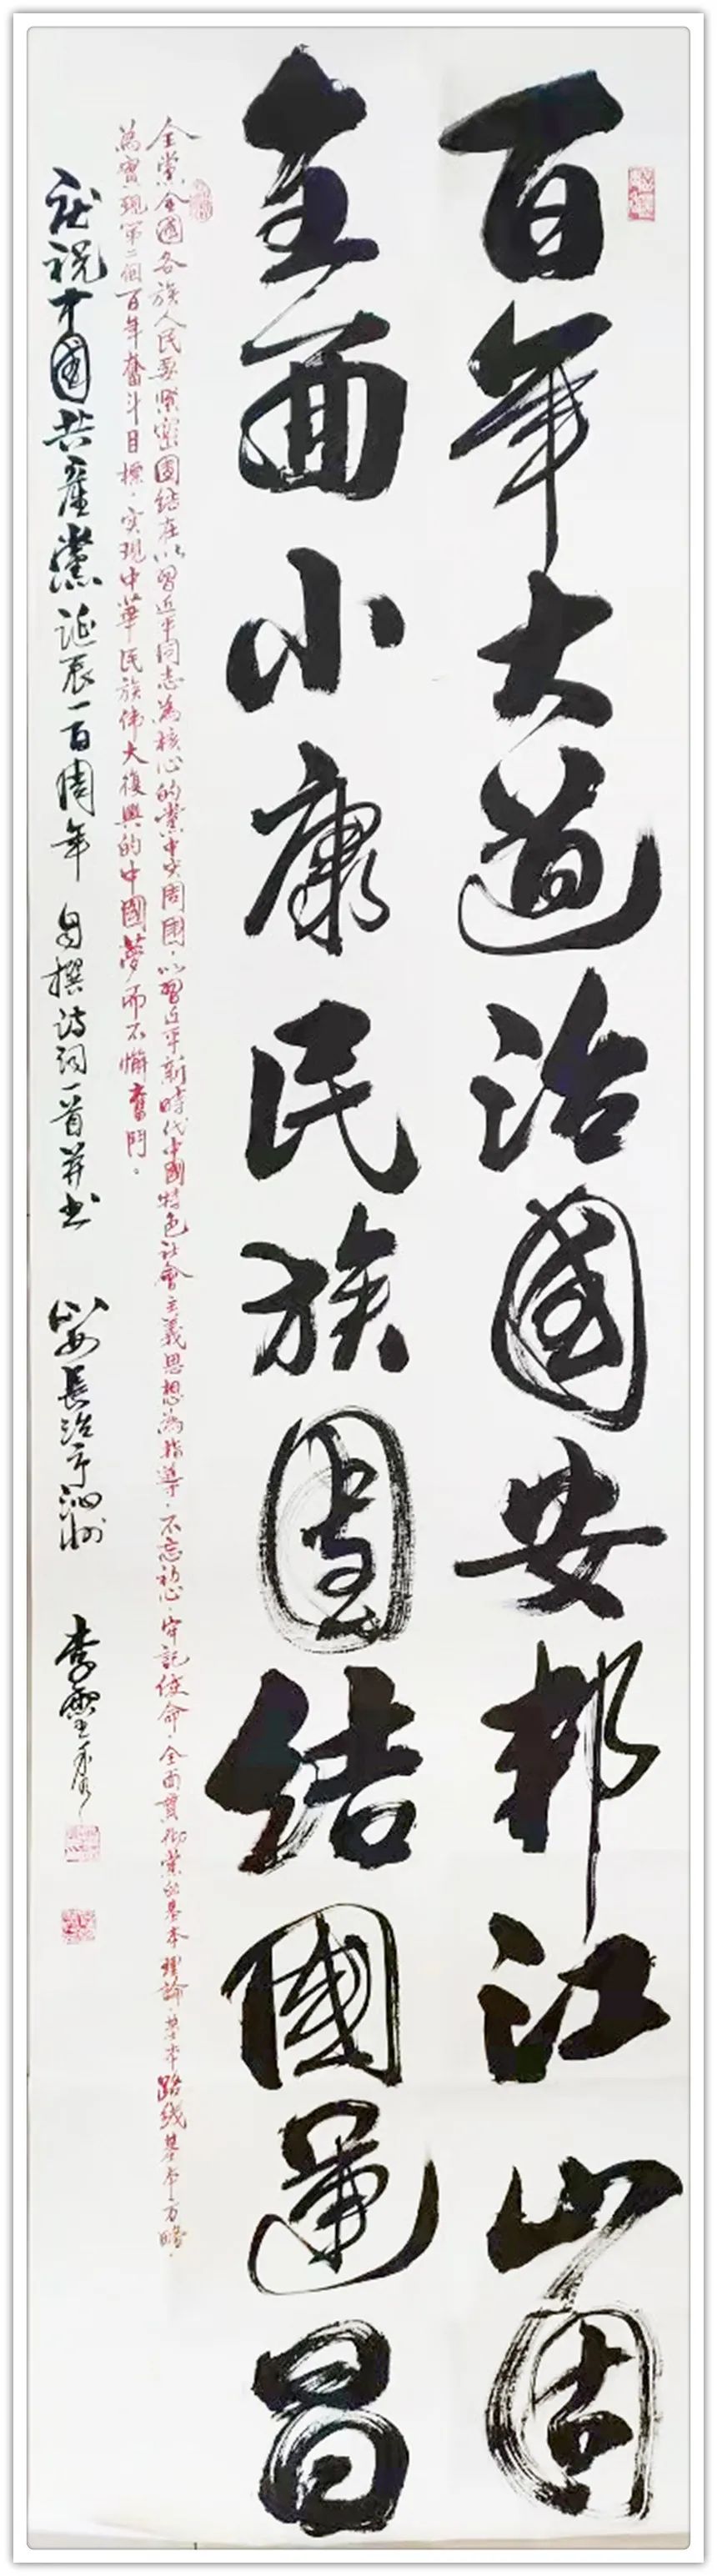 百年大道治國安邦江山固
全面小康民族團結國運昌
全黨全國各族人民要緊密團結在以習近平同志為核心的黨中央周圍，以習近平新時代中國特色社會主義思想為指導，不忘初心，牢記使命，全面貫彻黨的基本理論，基本路綫，基本方略，
為實現第二個百年奮斗目標，实現中華民族伟大復興的中國夢而不懈奮鬥。
庆祝中國共產黨诞辰一百周年 自撰诗词一首并书 长治市沁州 李雲